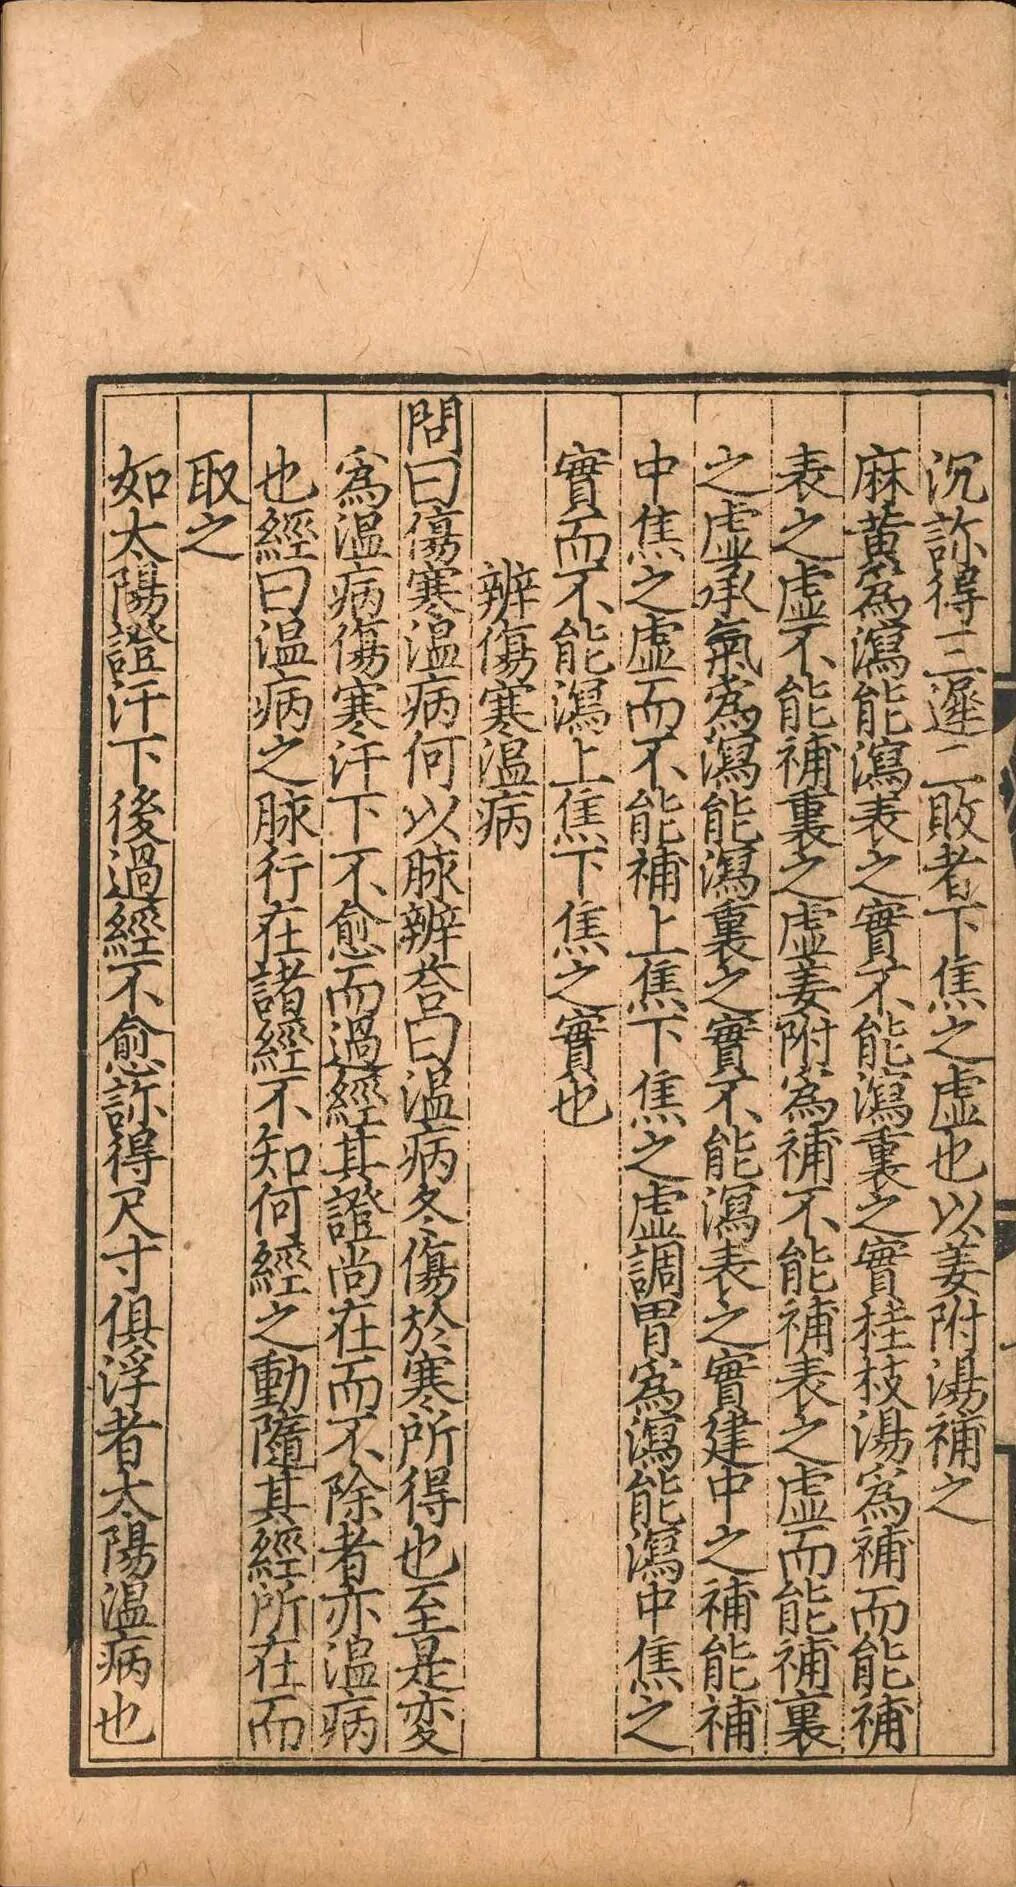 沉診得三遲二敗者下焦之虛也以姜附湯補之
麻黄為瀉能瀉表之實不能瀉裏之實桂枝湯為補而能補
表之虛不能補裏之虛姜附為補不能補表之虛而能補裏
之虛承氣為瀉能瀉裏之實不能瀉表之實建中之補能補
中焦之虛而不能補上焦下焦之虛調胃為瀉能瀉中焦之
實而不能瀉上焦下焦之實也
辨傷寒溫病
問曰傷寒溫病何以脉辨荅曰溫病冬傷於寒所得也至是变
為溫病傷寒汗下不愈而過經其證尚在而不除者亦溫病
也經曰溫病之脉行在諸經不知何經之動隨其經所在而
取之
如太陽證汗下後過經不愈診得尺寸俱浮者太陽溫病也